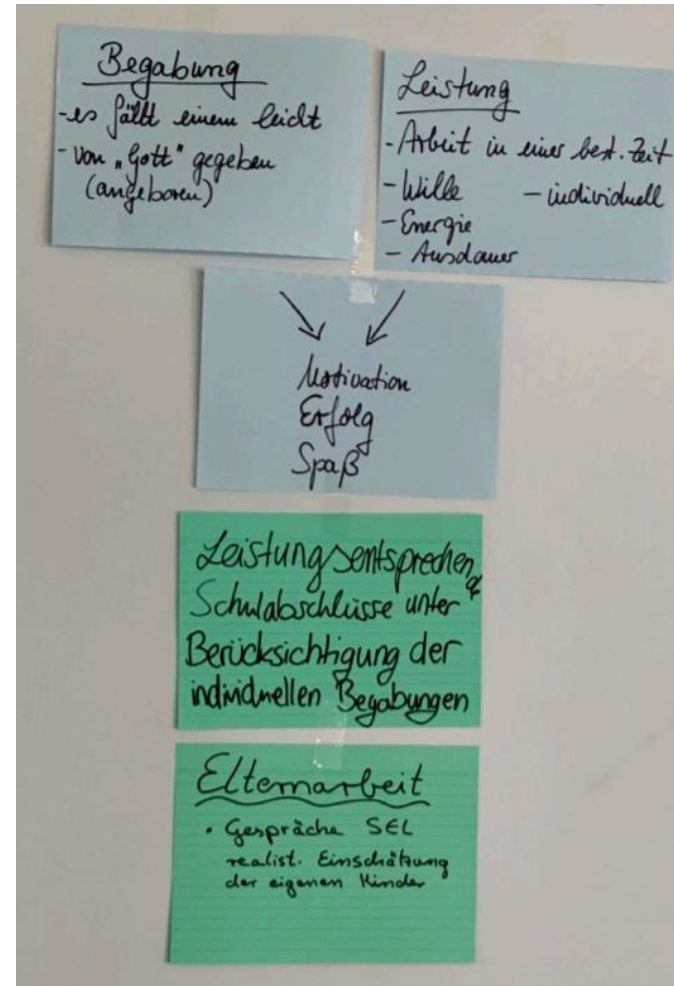 Begabung
-es fällt einem leicht
- von „Gott" gegeben
(angeboren)
Leistung
- Arbeit in einer best. Zeit
- Wille - individuell
- Energie
- Ausdauer
Motivation
Erfolg
Spaß
Leistungsentsprechende
Schulabschlüsse unter
Berücksichtigung der
individuellen Begabungen
Elternarbeit
• Gespräche SEL
realist. Einschätzung
der eigenen Kinder